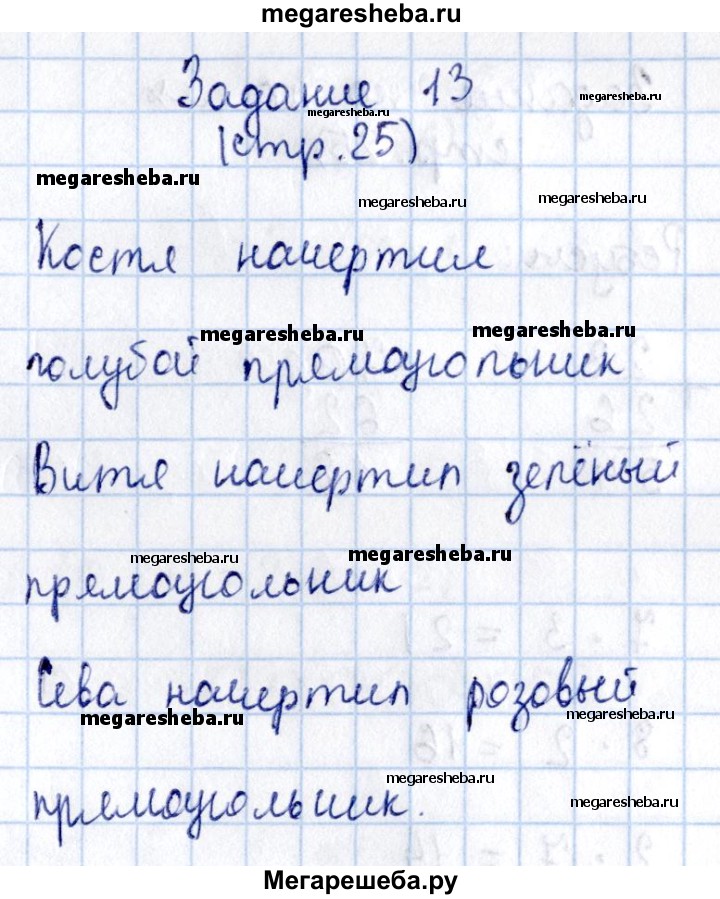 megaresheba.ru
Задание 13
megaresheba.ru
megaresheba.ru
(стр.25)
megaresheba.ru
megaresheba.ru
megaresheba.ru
Костя начертил
megaresheba.ru
megaresheba.ru
голубой прямоугольник
Витя начертил зелёный
megaresheba.ru
megaresheba.ru
прямоугольник
Сева начертил розовый
megaresheba.ru
megaresheba.ru
megaresheba.ru
megaresheba.ru
прямоугольник.
Мегарешеба.ру